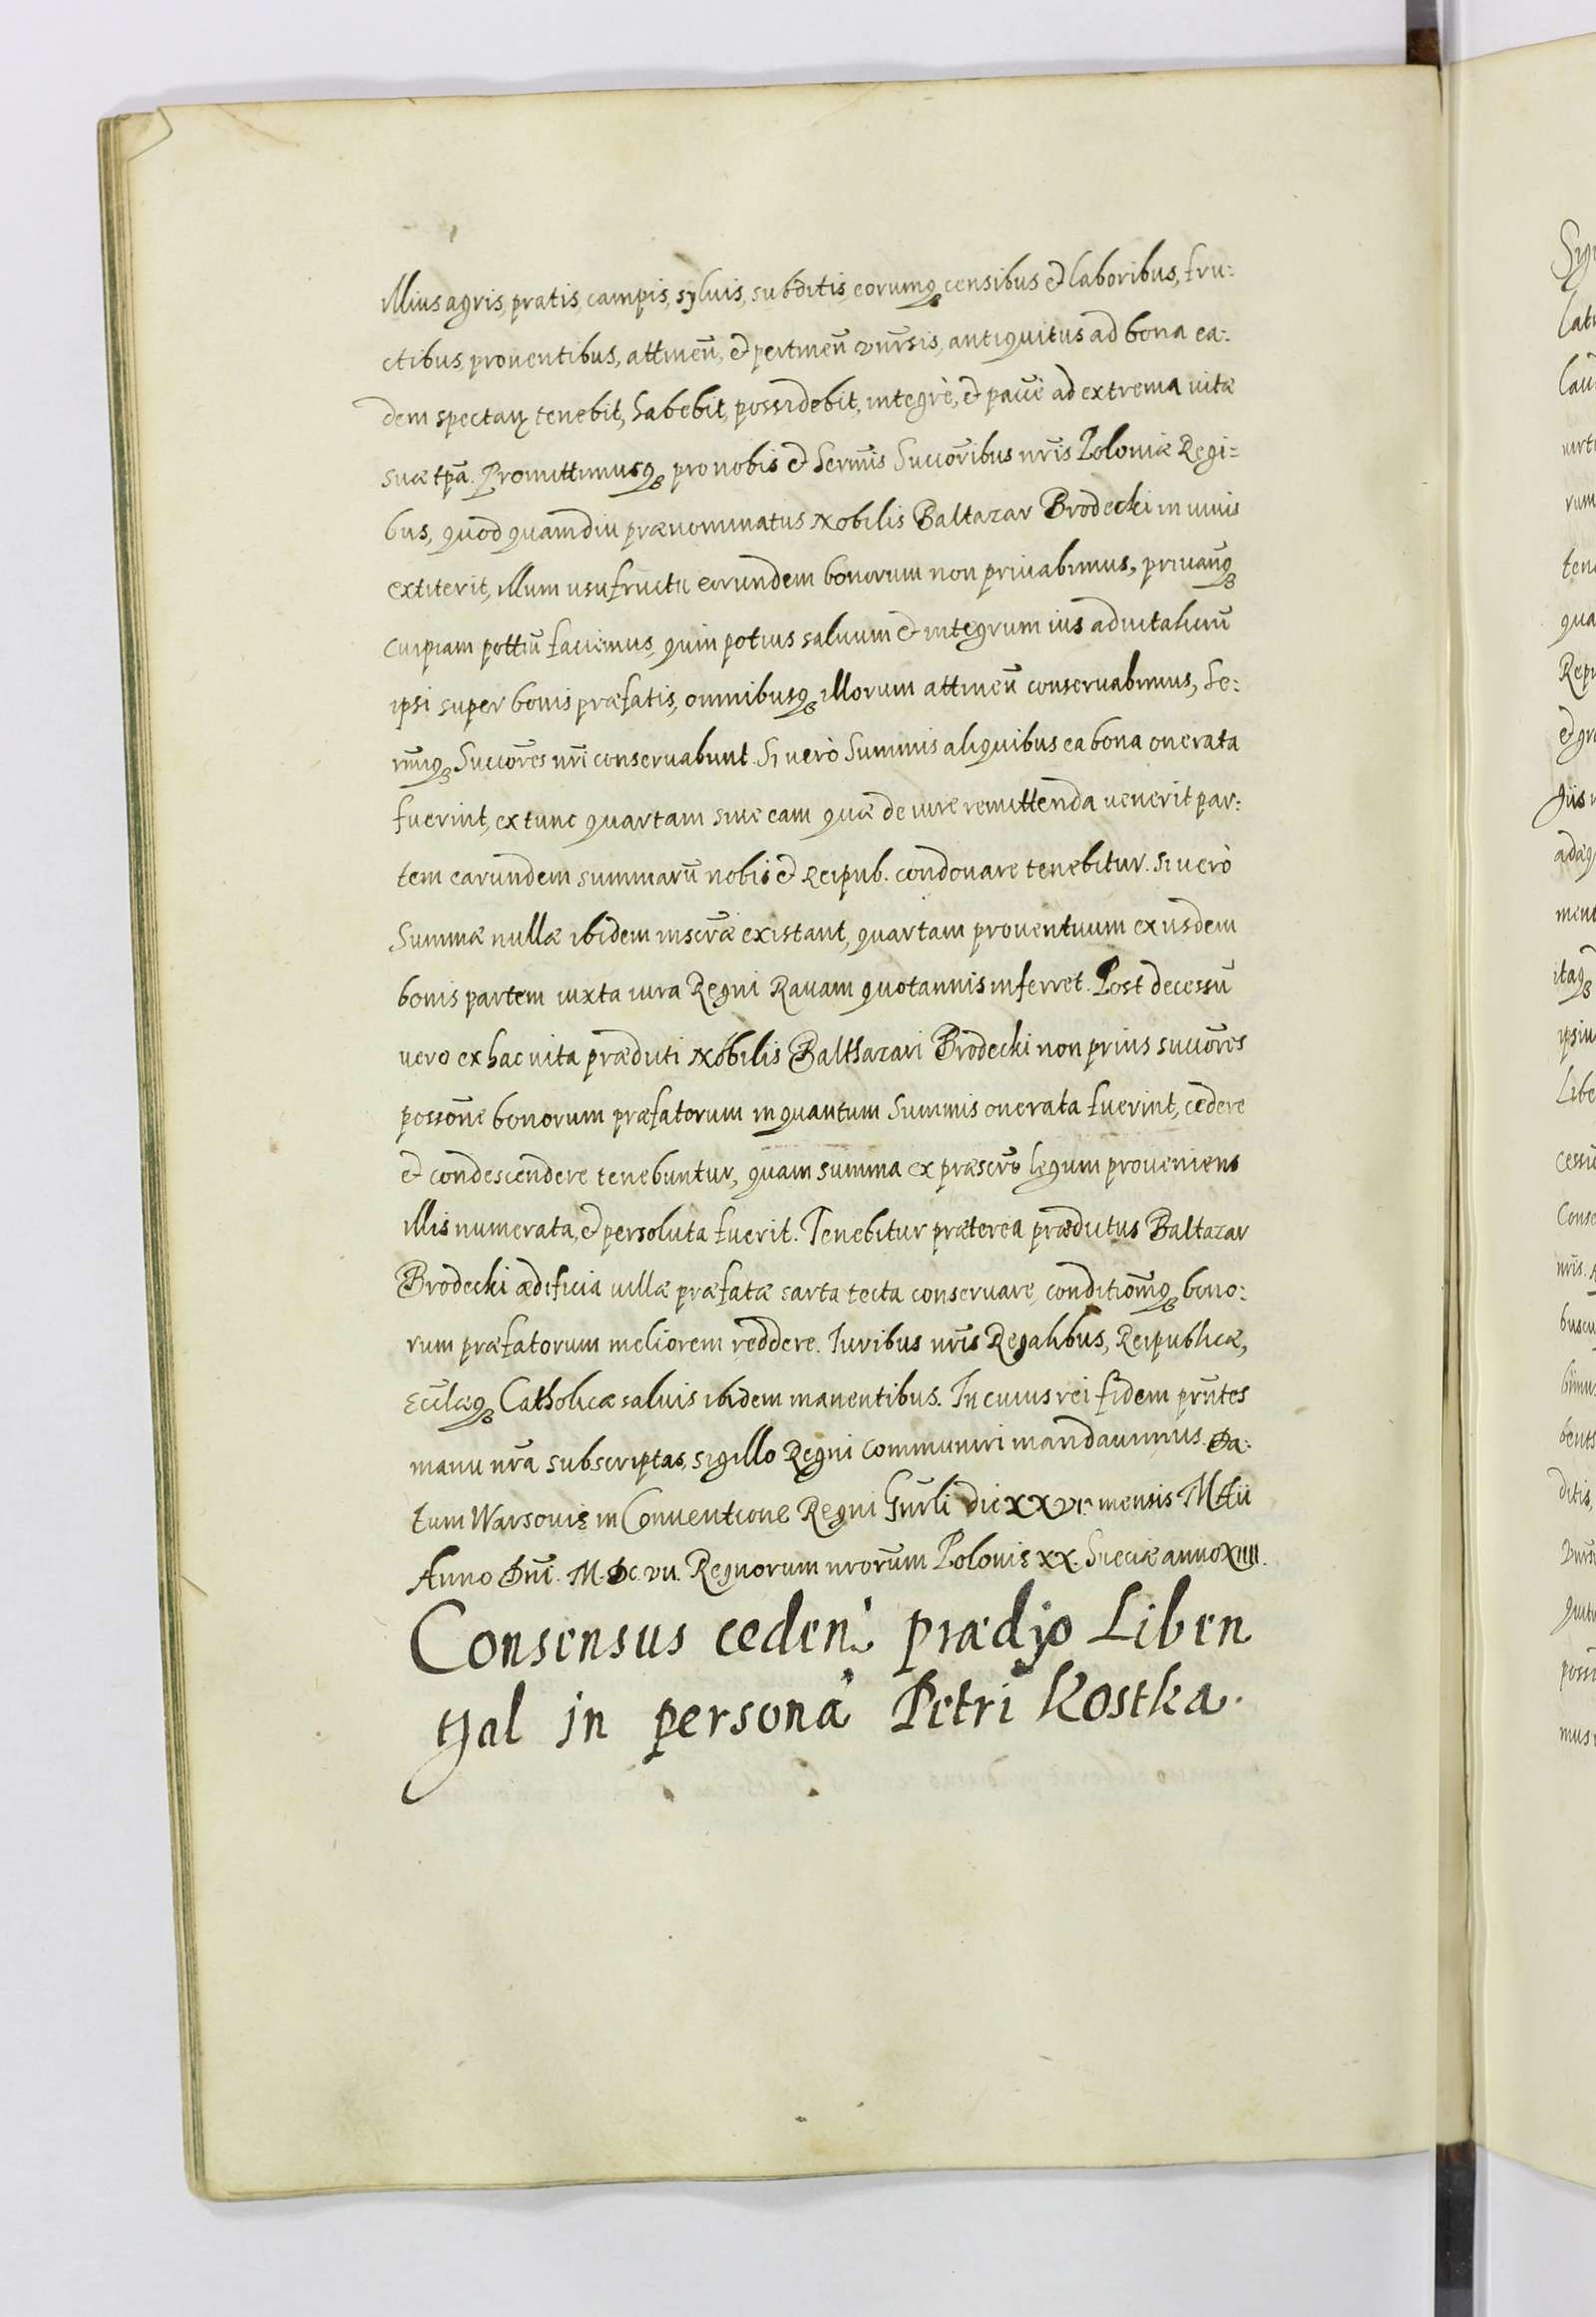 illius agris, pratis, campis, syluis, subditis eorumq́ censibus et laboribus, fru:
ctibus, prouentibus, attineñ, et pertineñ vniŕsis, antiquitus ad bona ea:
dem spectañ tenebit, habebit, possidebit, integrè, et paccẽ ad extrema uitæ
suæ tp̃a. Promittimusq́ pro nobis et Serm̃is Succor̃ibus nr̃is Poloniæ Regi:
bus, quod quamdiu prænominatus Nobilis Baltazar Brodecki in uiuis
extiterit, illum usufructu eorundem bonorum non priuabimus, priuañq́
cuipiam pot̃tm̃ faciemus, quin potius saluum et integrum ius aduitaliciũ
ipsi super bonis præfatis, omnibusq́ illorum attineñ conseruabimus, Se:
rm̃iq́ Succor̃es nr̃i conseruabunt. Si uerò Summis aliquibus ea bona onerata
fuerint, ex tunc quartam siue eam quæ de iure remittenda uenerit par:
tem earundem summarũ nobis et Reipub. condonare tenebitur. Si uerò
Summæ nullæ ibidem inscr̃æ existant, quartam prouentuum ex iisdem
bonis partem iuxta iura Regni Rauam quotannis inferret. Post decessũ
uero ex hac uita prædicti Nobilis Balthazari Brodecki non prius succor̃es
possor̃ne bonorum præfatorum in quantum Summis onerata fuerint, cedere
et condescendere tenebuntur, quam summa ex præscr̃o legum proueniens
illis numerata, et persoluta fuerit. Tenebitur præterea prædictus Baltazar
Brodecki ædificia uillæ præfatæ sarta tecta conseruare, conditiom̃q́ bono:
rum præfatorum meliorem reddere. Iuribus nr̃is Regalibus, Reipublicæ,
Eccl̃æq́ Catholicæ saluis ibidem manentibus. In cuius rei fidem prñtes
manu nr̃a subscriptas, sigillo Regni communiri mandauimus. Da:
tum Warsouię in Conuentione Regni Gñrli die XXVI. mensis Mãii
Anno Dñi. M.DC.VII. Regnorum nror̃um Polonię XX. Sueciæ anno XIIII.
Consensus ceden: prædjo Liben
tjal in persona Petri Kostka.